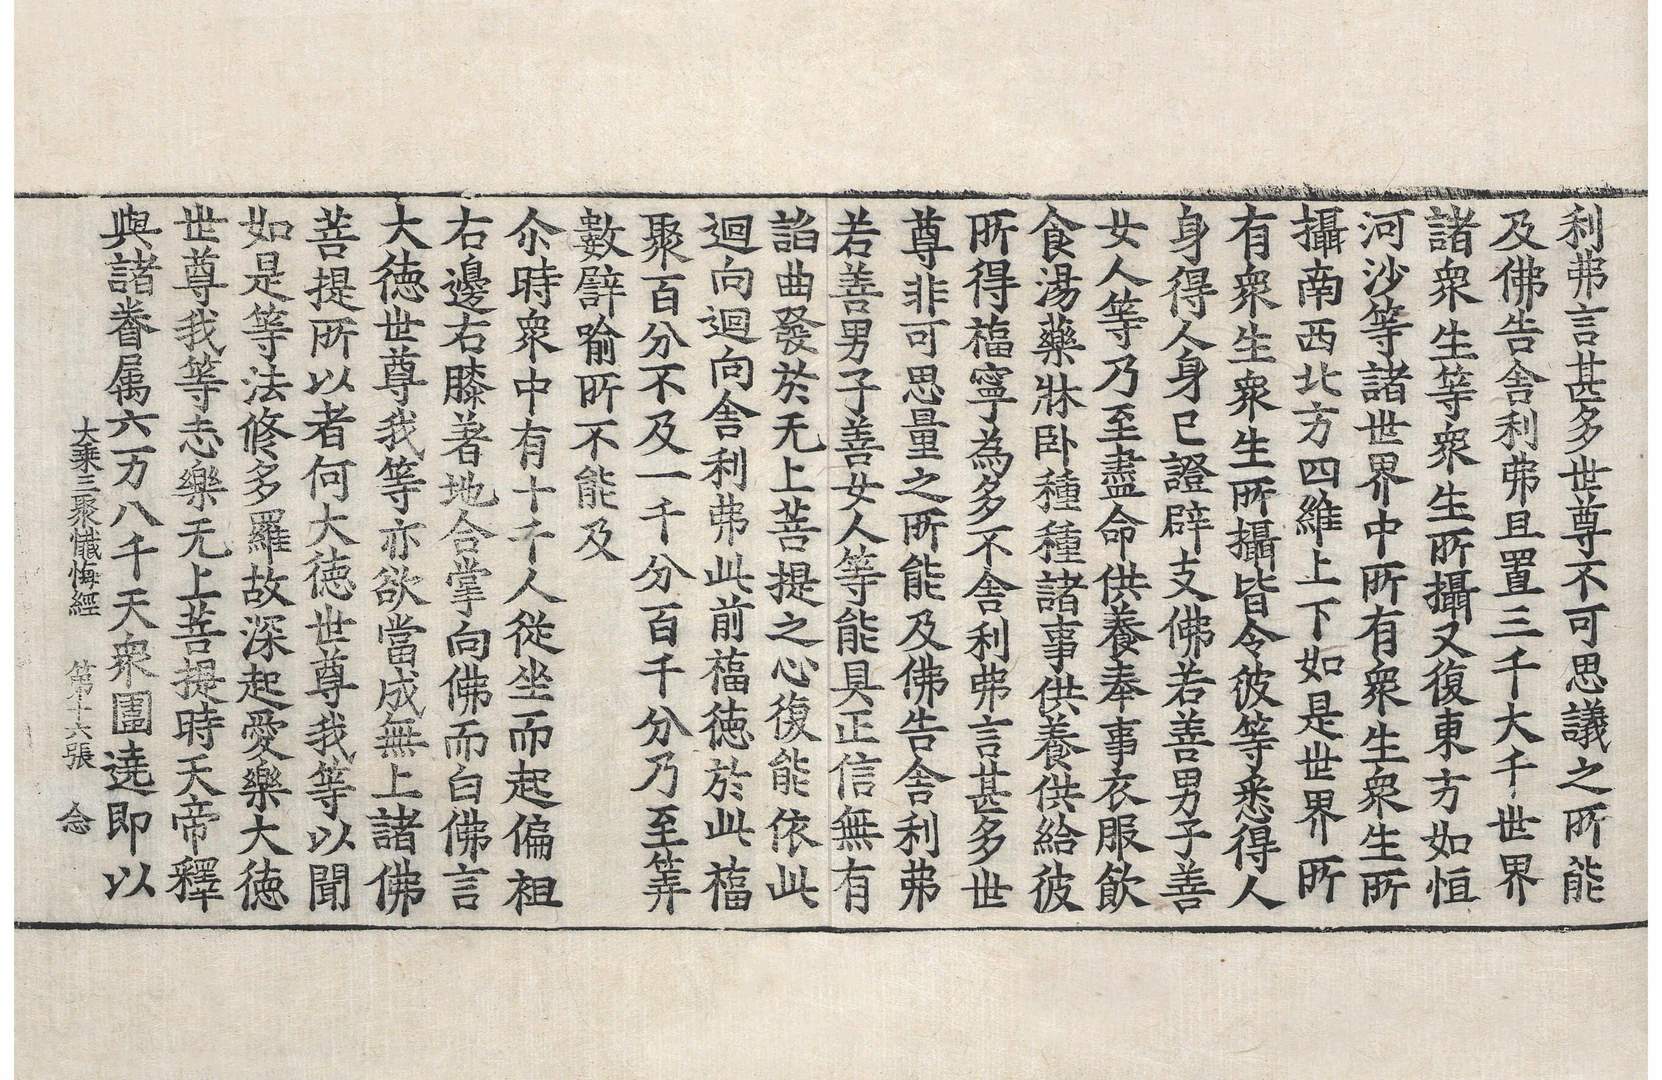 利弗言甚多世尊不可思議之所能
及佛告舍利弗且置三千大千世界
諸衆生等衆生所攝又復東方如恒
河沙等諸世界中所有衆生衆生所
攝南西北方四維上下如是世界所
有衆生衆生所攝皆令彼等悉得人
身得人身已證辟支佛若善男子善
女人等乃至盡命供養奉事衣服飲
食湯藥牀卧種種諸事供養供給彼
所得福寧為多不舍利弗言甚多世
尊非可思量之所能及佛告舍利弗
若善男子善女人等能具正信無有
諂曲發於无上菩提之心復能依此
迴向迴向舍利弗此前福徳於此福
聚百分不及一千分百千分乃至筭
數譬喻所不能及
尒時衆中有十千人從坐而起偏袒
右邊右膝著地合掌向佛而白佛言
大徳世尊我等亦欲當成無上諸佛
菩提所以者何大徳世尊我等以聞
如是等法修多羅故深起愛樂大徳
世尊我等志樂无上菩提時天帝釋
與諸眷属六万八千天衆圍遶即以
大乘三聚懺悔經 第十六張 念